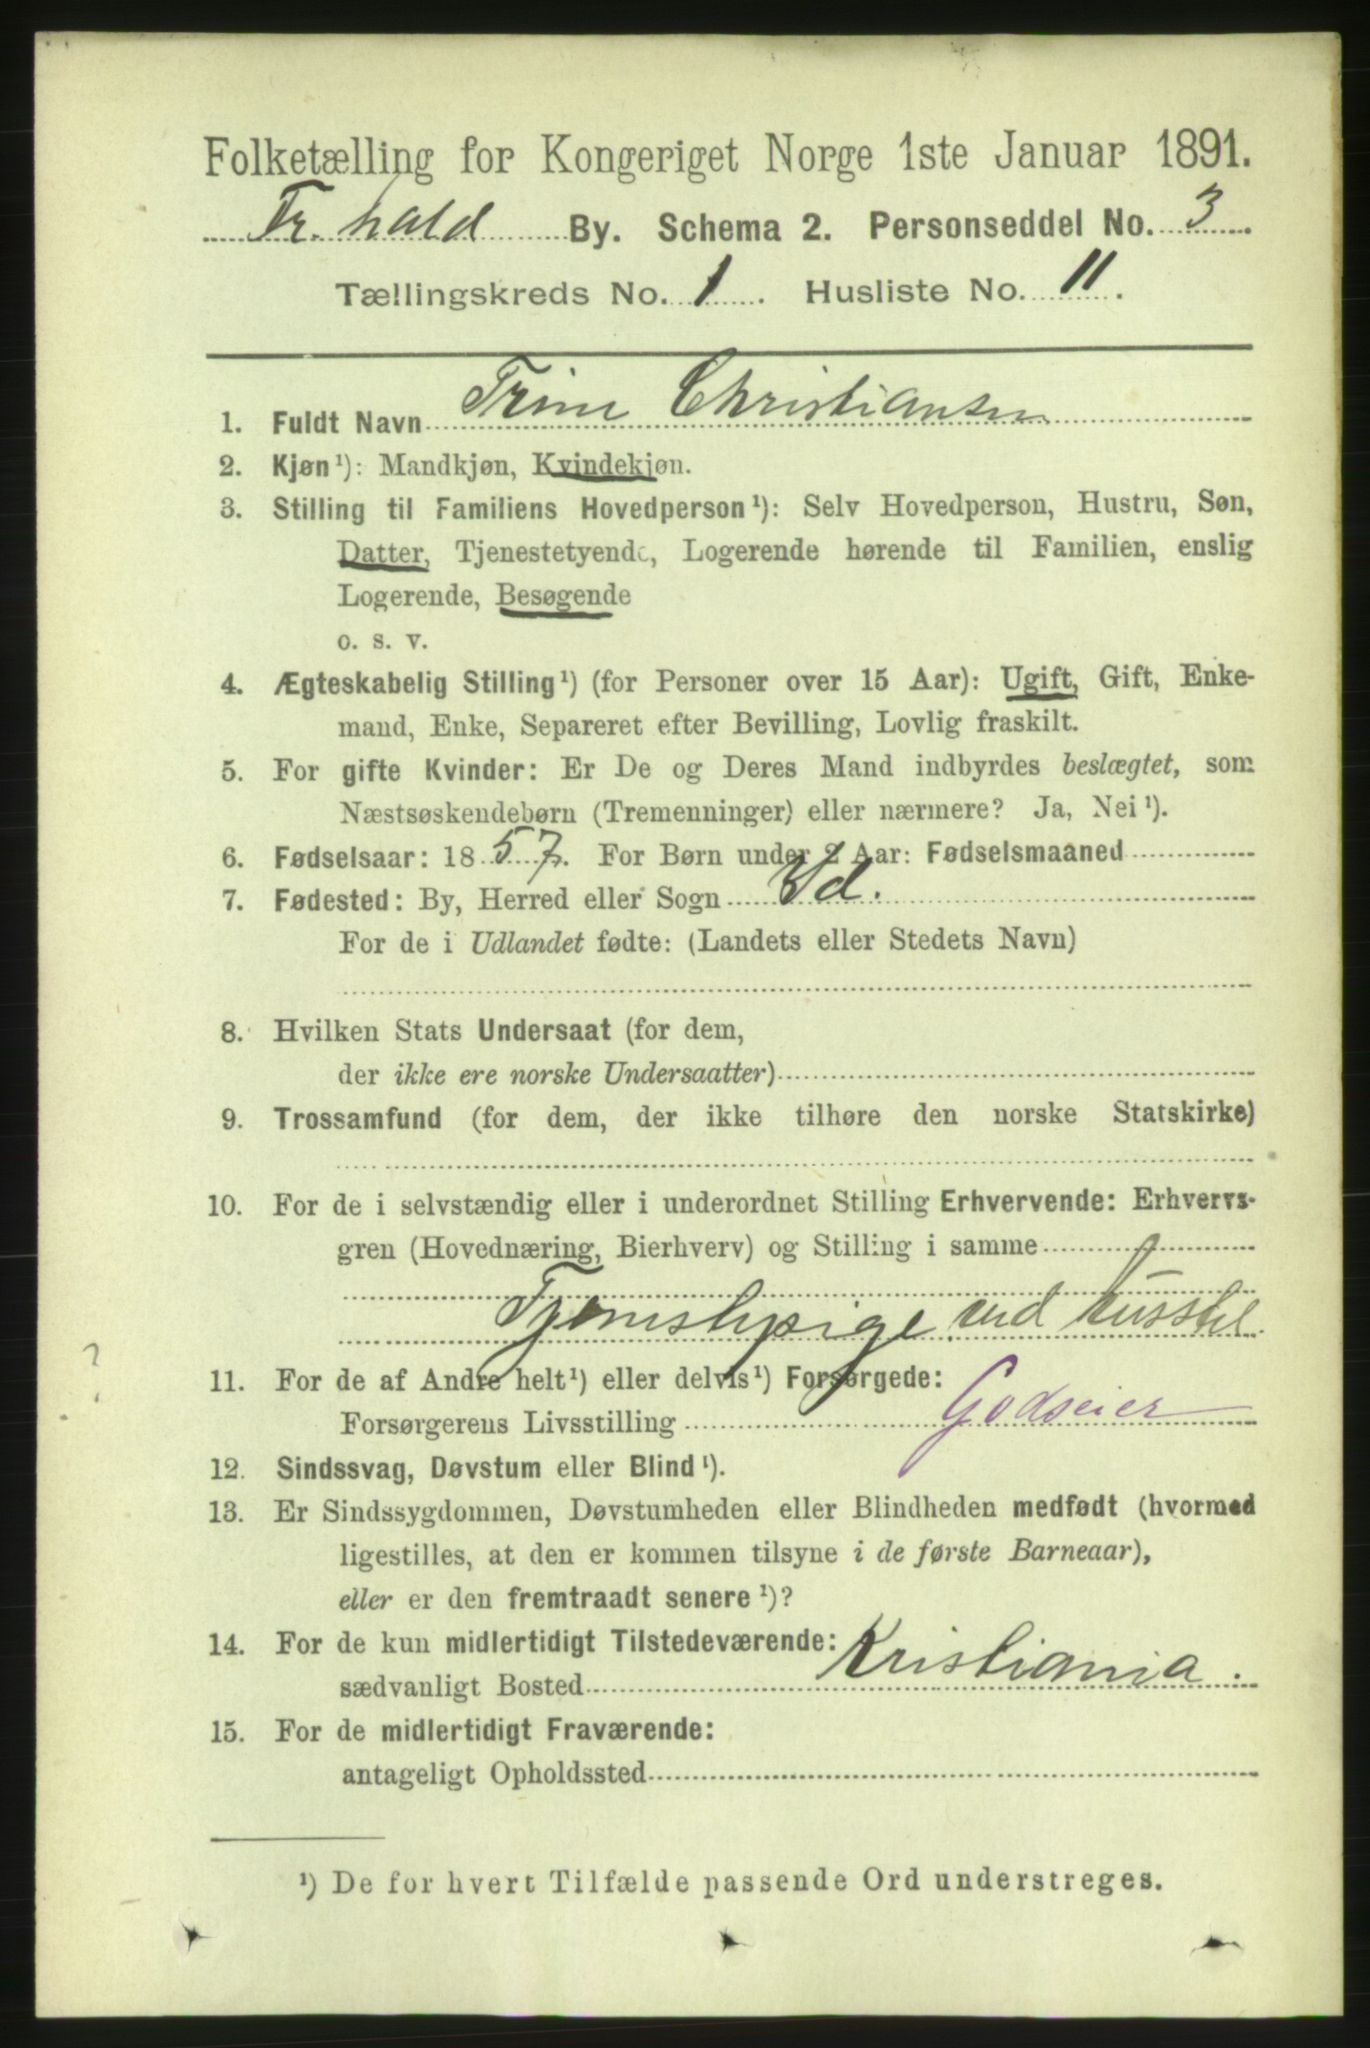 Folketælling for Kongeriget Norge 1ste Januar 1891.
Fr.hald By. Schema 2. Personseddel No. 3.
Tællingskreds No. 1. Husliste No. 11.
1. Fuldt Navn Trine Christiansen
2. Kjøn¹): Mandkjøn, Kvindekjøn.
3. Stilling til Familiens Hovedperson¹): Selv Hovedperson, Hustru, Søn,
Datter, Tjenestetyende, Logerende hørende til Familien, enslig
Logerende, Besøgende
o. s. v.
4. Ægteskabelig Stilling¹) (for Personer over 15 Aar): Ugift, Gift, Enke-
mand, Enke, Separeret efter Bevilling, Lovlig fraskilt.
5. For gifte Kvinder: Er De og Deres Mand indbyrdes beslægtet, som
Næstsøskendebørn (Tremenninger) eller nærmere? Ja, Nei¹).
6. Fødselsaar: 1857. For Børn under 2 Aar: Fødselsmaaned
7. Fødested: By, Herred eller Sogn Id.
For de i Udlandet fødte: (Landets eller Stedets Navn)
8. Hvilken Stats Undersaat (for dem,
der ikke ere norske Undersaatter)
9. Trossamfund (for dem, der ikke tilhøre den norske Statskirke)
10. For de i selvstændig eller i underordnet Stilling Erhvervende: Erhvervs-
gren (Hovednæring, Bierhverv) og Stilling i samme
Tjenestepige ved husstel
11. For de af Andre helt¹) eller delvis¹) Forsørgede:
Forsørgerens Livsstilling Godseier
12. Sindssvag, Døvstum eller Blind¹).
13. Er Sindssygdommen, Døvstumheden eller Blindheden medfødt (hvormed
ligestilles, at den er kommen tilsyne i de første Barneaar),
eller er den fremtraadt senere¹)?
14. For de kun midlertidigt Tilstedeværende:
sædvanligt Bosted Kristiania.
15. For de midlertidigt Fraværende:
antageligt Opholdssted
¹) De for hvert Tilfælde passende Ord understreges.
?